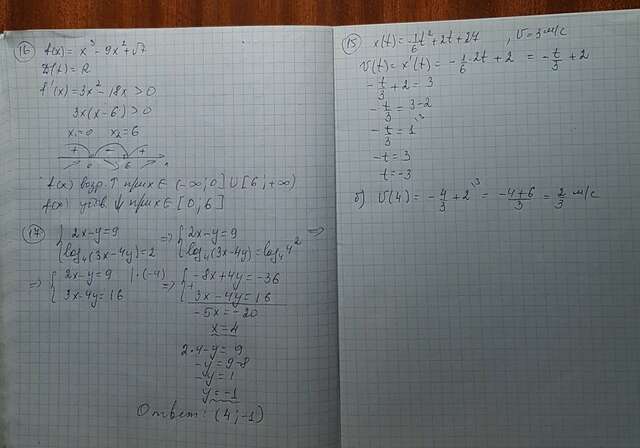 16 f(x) = x³ - 9x² + √7
D(f) = R
f'(x) = 3x² - 18x > 0
3x(x-6) > 0
x₁=0 x₂=6
+ - +
0 6 x
f(x) возр. ↑ при x ∈ (-∞; 0] ∪ [6; +∞)
f(x) убыв. ↓ при x ∈ [0; 6]
17 { 2x-y=9 => { 2x-y=9 =>
log₄(3x-4y)=2 log₄(3x-4y)=log₄4²
=> { 2x-y=9 |·(-4) => { -8x+4y=-36
3x-4y=16 + 3x-4y=16
-5x=-20
x=4
2·4-y=9
-y=9-8
-y=1
y=-1
Ответ: (4; -1)
15 x(t) = -1/6 t² + 2t + 27 , v=3 м/с
v(t) = x'(t) = -1/6 · 2t + 2 = -t/3 + 2
-t/3 + 2 = 3
-t/3 = 3-2
-t/3 = 1 \3
-t = 3
t = -3
б) v(4) = -4/3 + 2 \3 = (-4+6)/3 = 2/3 м/с